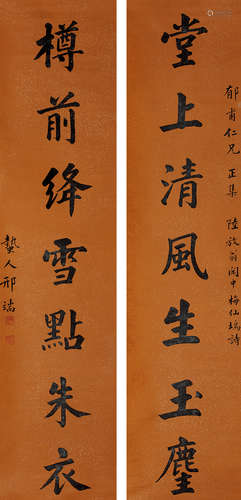 郁甫仁兄 正集 陸放翁閬中梅仙塢詩
堂上清風生玉麈
樽前絳雪點朱衣
蟄人邢端